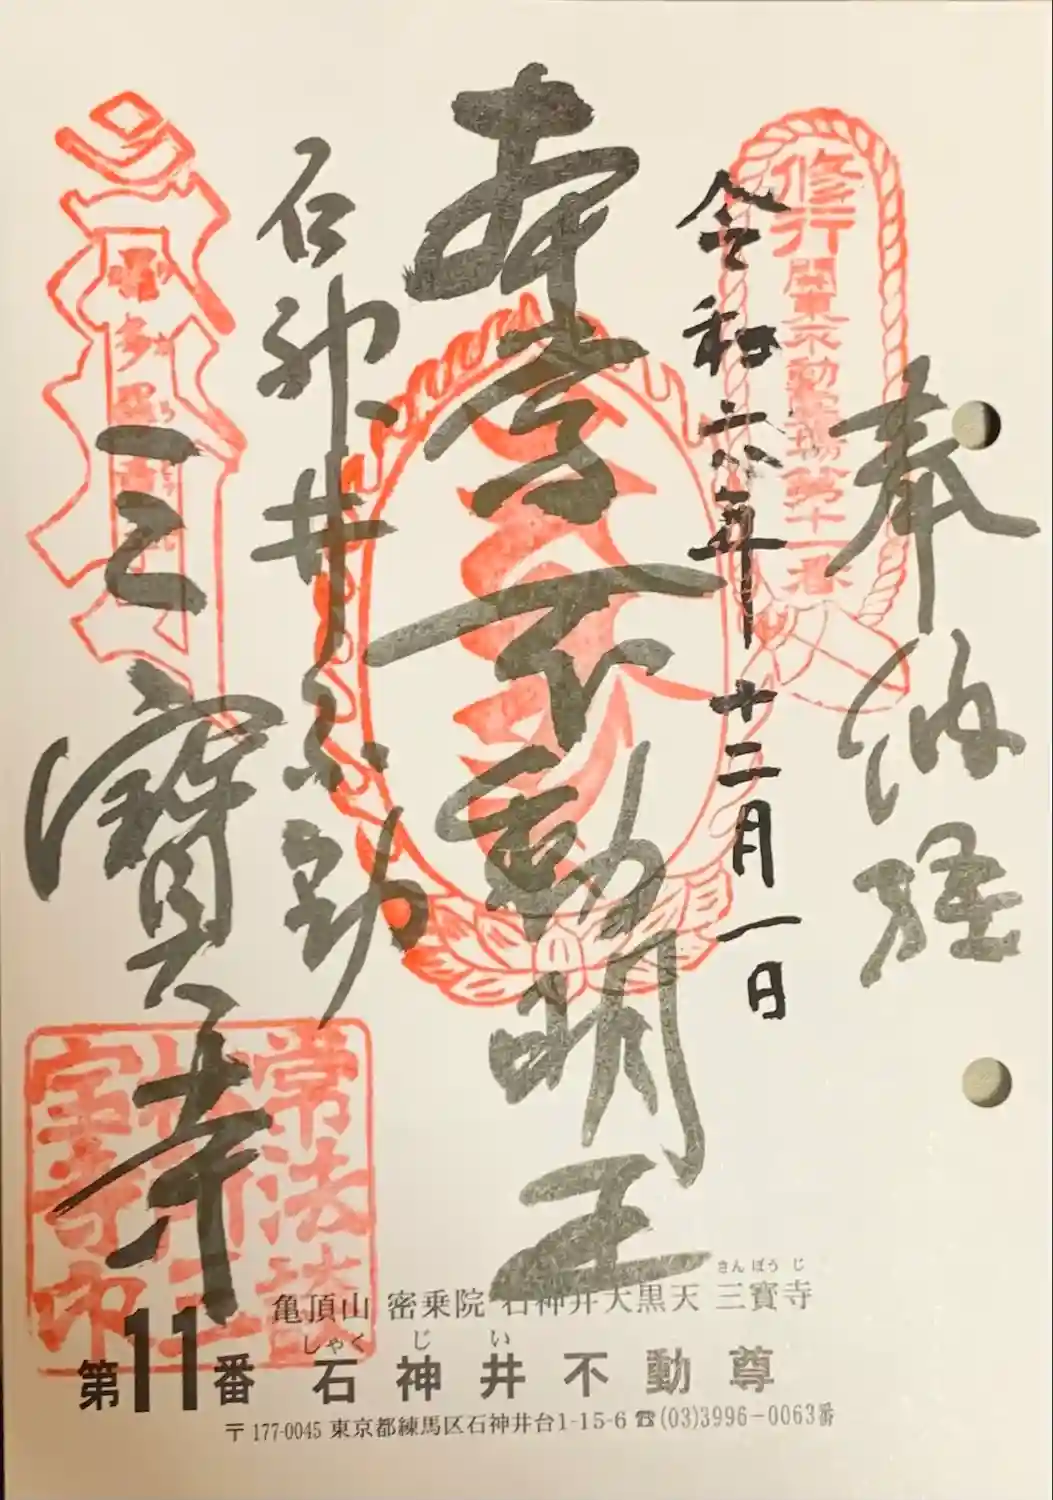 奉納経
令和六年十二月一日
本尊不動明王
石神井不動
三寳寺
修行
関東不動霊場第十一番
常法談
林所三
宝寺印
さんぽうじ
亀頂山 密乗院 石神井大黒天 三寳寺
しゃくじい
第11番 石神井不動尊
〒177-0045 東京都練馬区石神井台1-15-6 ☎(03)3996-0063番